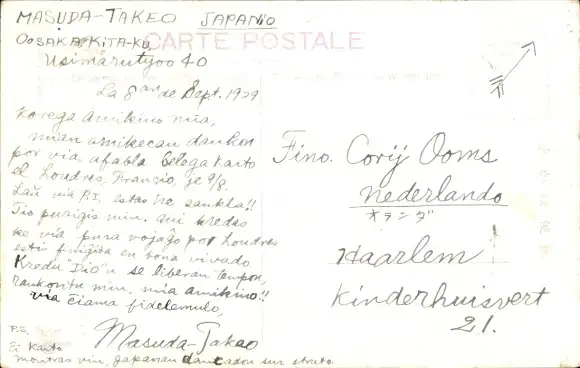 MASUDA-TAKEO JAPANIO
OOSAKA, KITA-KU,
Usimarutyoo 40
CARTE POSTALE
La 8an de Sept. 1929
Korega Amikino mia,
mian amikecan dankon
por via afabla belega karto
el Londres, Francio, je 9/8.
Laŭ via P.I. estas ne sankta!!
Tio min. mi kredas
ke via pura vojaĝo por Londres
estis en bona vivado
Kredu "Dio"n se liberan tempon,
min. mia amikino!!
via ĉiama fidelemulo,
Masuda-Takeo
P.S.
Ĉi karto
montras vin, japanan dancadon sur strato.
Fino. Corij Ooms
Nederlando
オランダ
Haarlem
Kinderhuisvert
21.